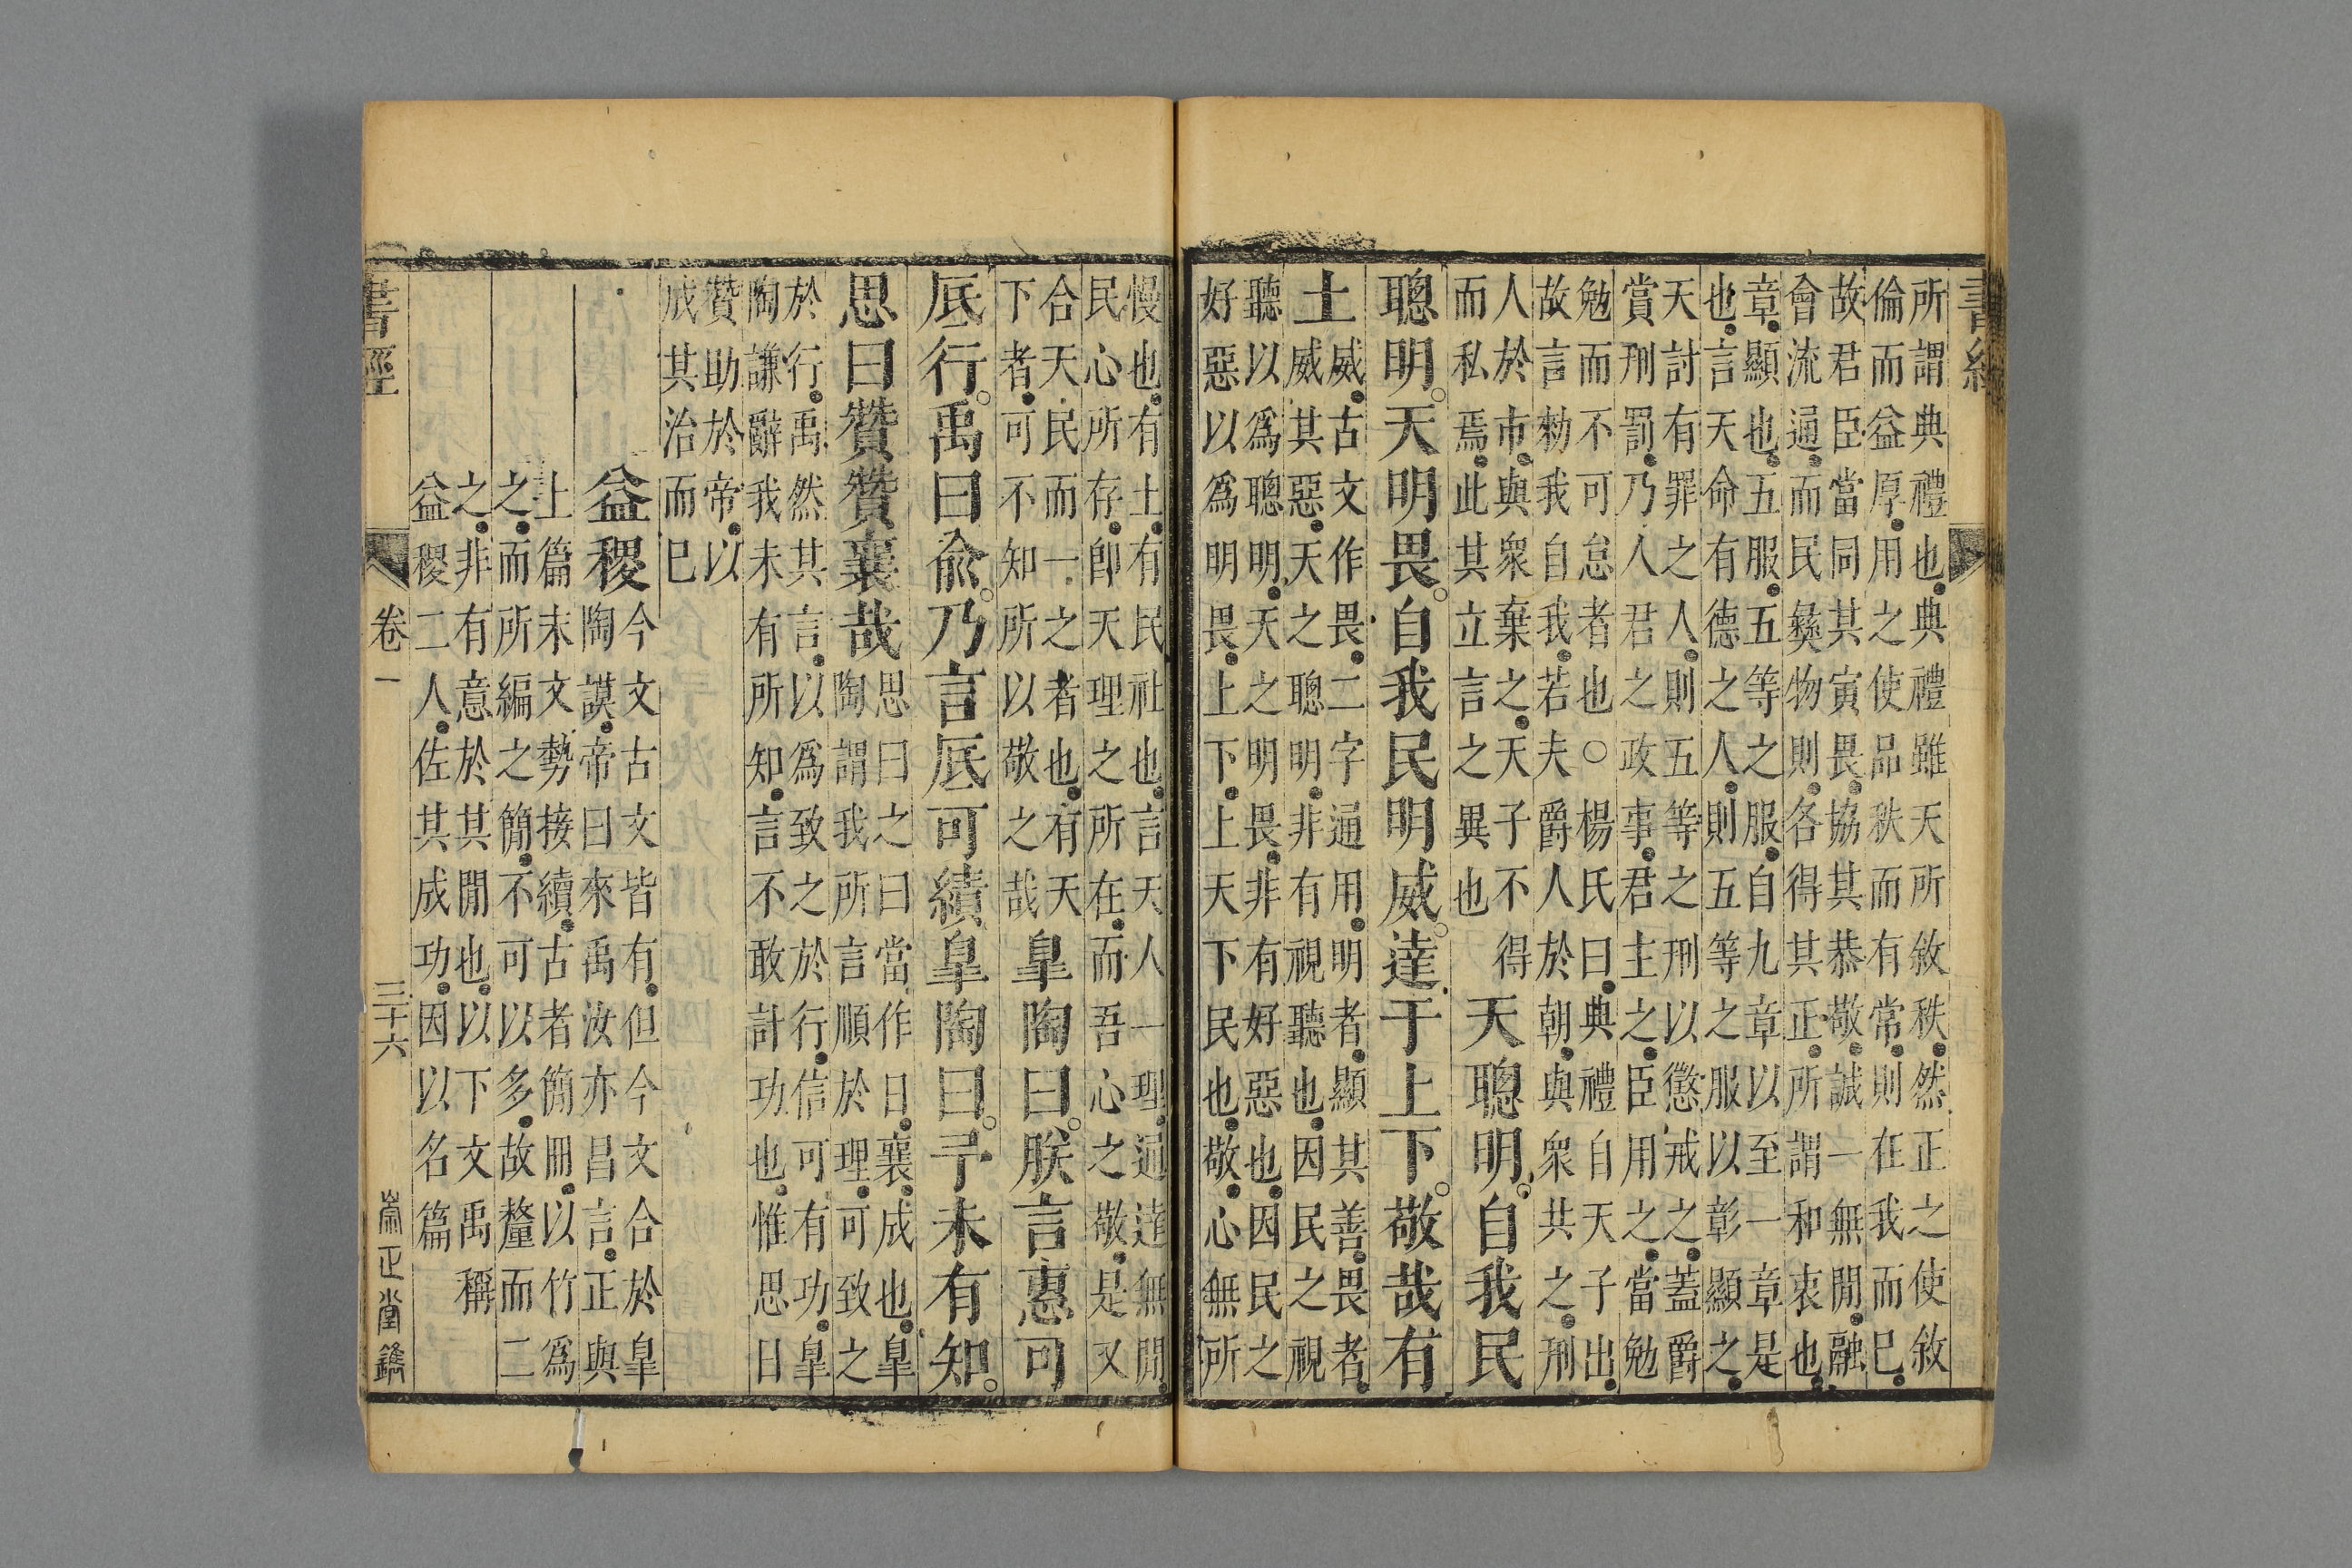 書經
所謂典禮也典禮雖天所敘秩然正之使敘
倫而益厚用之使品秩而有常則在我而已
故君臣當同其寅畏協其恭敬誠一無閒融
會流通而民彝物則各得其正所謂和衷也
章顯也五服五等之服自九章以至一章是
也言天命有德之人則五等之服以彰顯之
天討有罪之人則五等之刑以懲戒之蓋爵
賞刑罰乃人君之政事君主之臣用之當勉
勉而不可怠者也○楊氏曰典禮自天子出
故言勑我自我若夫爵人於朝與衆共之刑
人於市與衆棄之天子不得
而私焉此其立言之異也
天聰明自我民
聰明天明畏自我民明威達于上下敬哉有
土
威古文作畏二字通用明者顯其善畏者
威其惡天之聰明非有視聽也因民之視
聽以爲聰明天之明畏非有好惡也因民之
好惡以爲明畏上下上天下民也敬心無所
慢也有土有民社也言天人一理通達無閒
民心所存卽天理之所在而吾心之敬是又
合天民而一之者也有天
下者可不知所以敬之哉
皐陶曰朕言惠可
厎行禹曰俞乃言厎可績皐陶曰予未有知
思曰贊贊襄哉
思曰之曰當作日襄成也皐
陶謂我所言順於理可致之
於行禹然其言以爲致之於行信可有功皐
陶謙辭我未有所知言不敢計功也惟思日
贊助於帝以
成其治而巳
益稷
今文古文皆有但今文合於皐
陶謨帝曰來禹汝亦昌言正與
上篇末文勢接續古者簡冊以竹爲
之而所編之簡不可以多故釐而二
之非有意於其閒也以下文禹稱
益稷二人佐其成功因以名篇
書經
卷一
三十六
崇正堂鐫